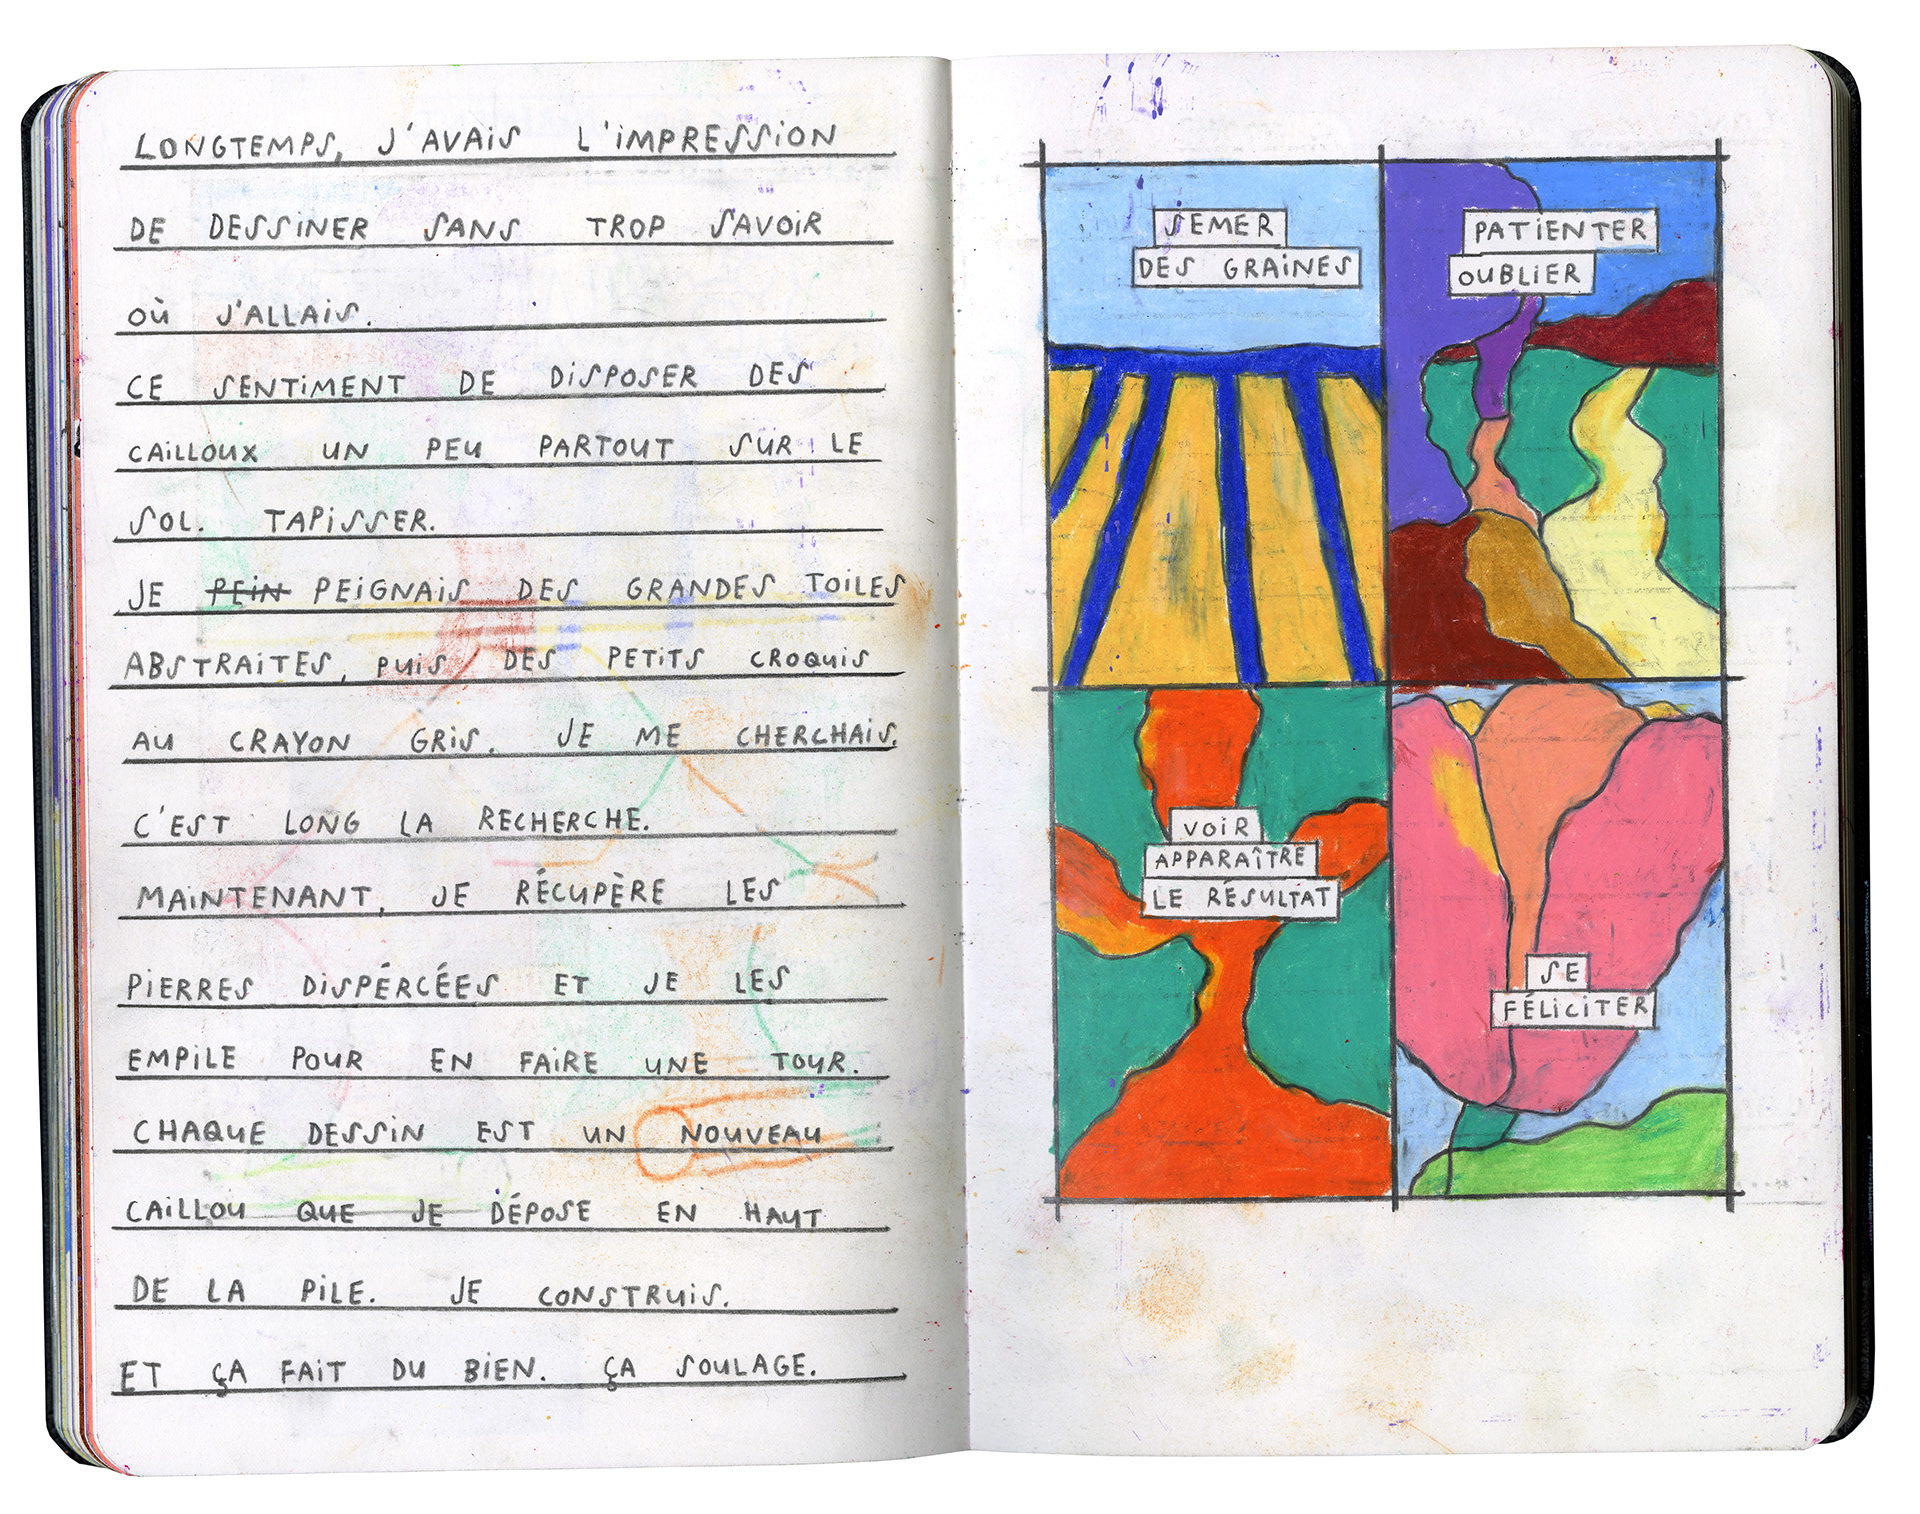 LONGTEMPS, J'AVAIS L'IMPRESSION
DE DESSINER SANS TROP SAVOIR
OÙ J'ALLAIS.
CE SENTIMENT DE DISPOSER DES
CAILLOUX UN PEU PARTOUT SUR LE
SOL. TAPISSER.
JE PEIN PEIGNAIS DES GRANDES TOILES
ABSTRAITES, PUIS DES PETITS CROQUIS
AU CRAYON GRIS. JE ME CHERCHAIS.
C'EST LONG LA RECHERCHE.
MAINTENANT, JE RÉCUPÈRE LES
PIERRES DISPÉRCÉES ET JE LES
EMPILE POUR EN FAIRE UNE TOUR.
CHAQUE DESSIN EST UN NOUVEAU
CAILLOU QUE JE DÉPOSE EN HAUT
DE LA PILE. JE CONSTRUIS.
ET ÇA FAIT DU BIEN. ÇA SOULAGE.
SEMER
DES GRAINES
PATIENTER
OUBLIER
VOIR
APPARAÎTRE
LE RÉSULTAT
SE
FÉLICITER